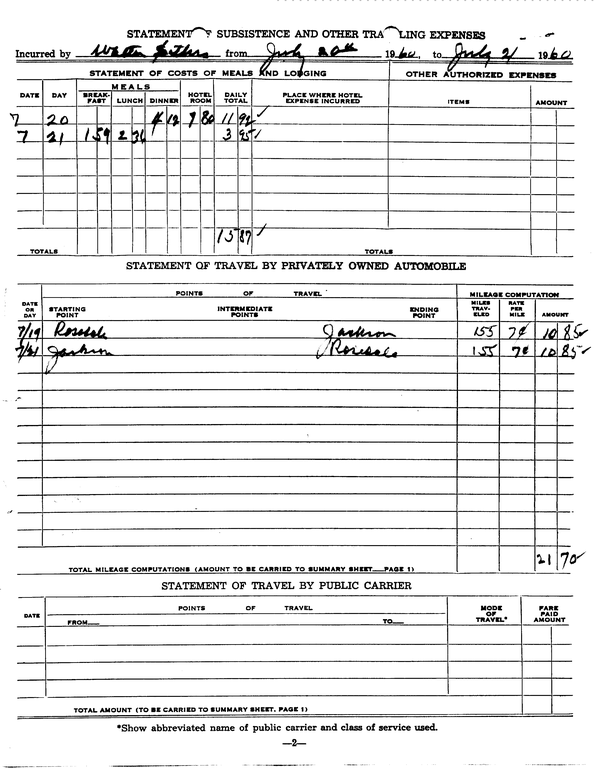 STATEMENT OF SUBSISTENCE AND OTHER TRA LING EXPENSES
Incurred by from July 20th 1960, to July 21 1960
STATEMENT OF COSTS OF MEALS AND LODGING OTHER AUTHORIZED EXPENSES
MEALS
DATE DAY BREAK-FAST LUNCH DINNER HOTEL ROOM DAILY TOTAL PLACE WHERE HOTEL EXPENSE INCURRED ITEMS AMOUNT
7 20 4 12 7 80 11 92 ✓
7 21 1 59 2 36 3 95 ✓
15 87 ✓
TOTALS TOTALS
STATEMENT OF TRAVEL BY PRIVATELY OWNED AUTOMOBILE
POINTS OF TRAVEL MILEAGE COMPUTATION
DATE OR DAY STARTING POINT INTERMEDIATE POINTS ENDING POINT MILES TRAV-ELED RATE PER MILE AMOUNT
7/19 Rosedale Jackson 155 7¢ 10 85 ✓
7/21 Jackson Rosedale 155 7¢ 10 85 ✓
TOTAL MILEAGE COMPUTATIONS (AMOUNT TO BE CARRIED TO SUMMARY SHEET PAGE 1) 21 70 ✓
STATEMENT OF TRAVEL BY PUBLIC CARRIER
DATE POINTS OF TRAVEL MODE OF TRAVEL* FARE PAID AMOUNT
FROM TO
TOTAL AMOUNT (TO BE CARRIED TO SUMMARY SHEET, PAGE 1)
*Show abbreviated name of public carrier and class of service used.
—2—